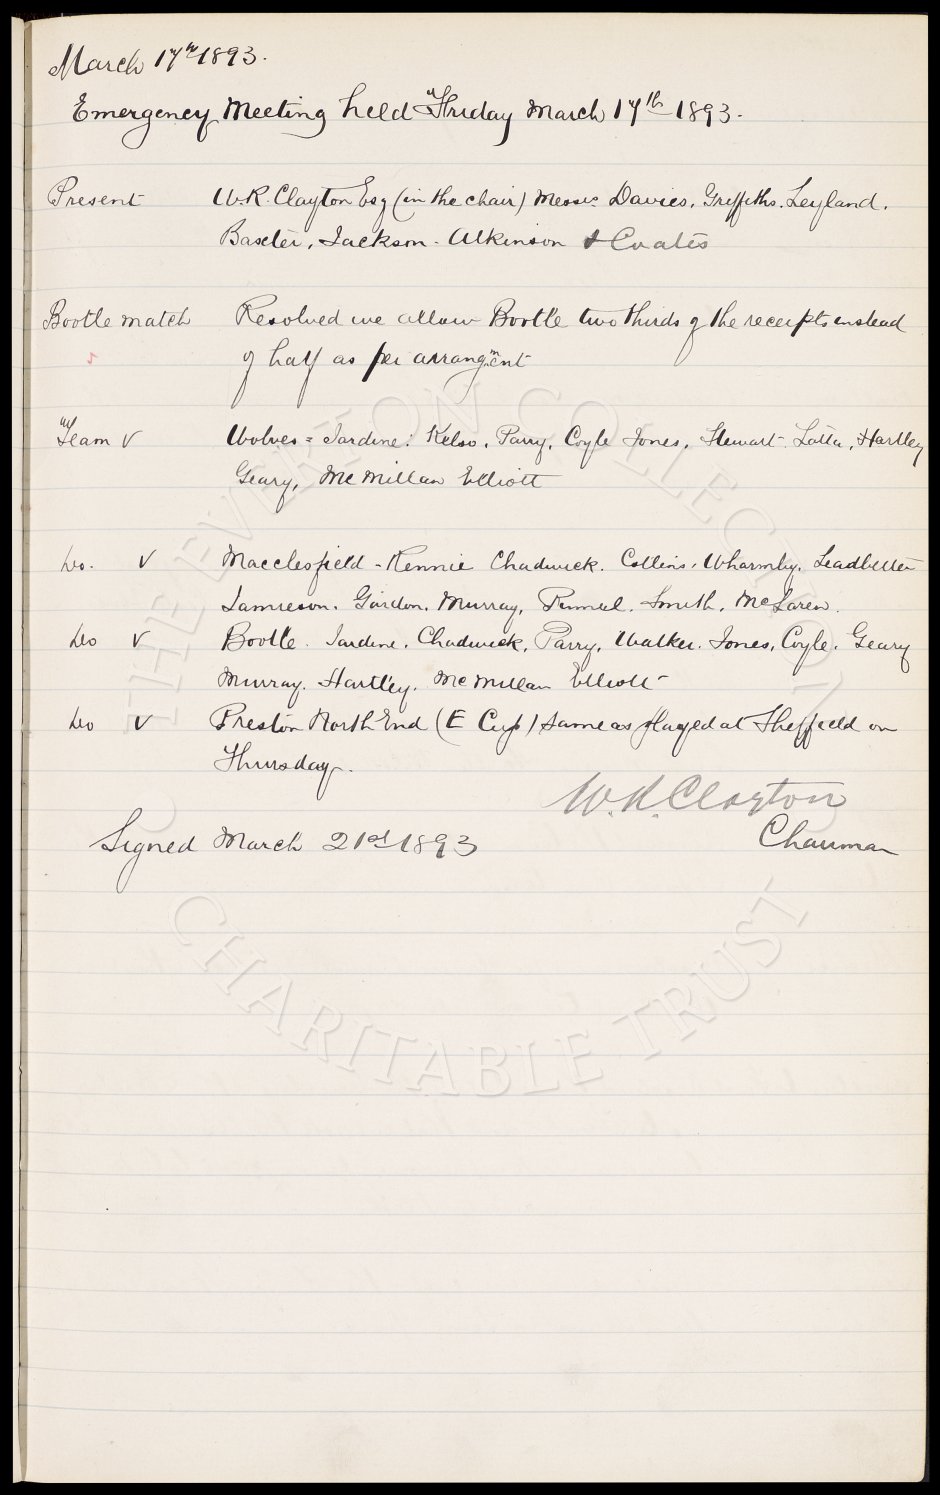 March 17th 1893.
Emergency Meeting held Friday March 17th 1893.
Present W.R. Clayton Esq (in the chair) Messrs Davies, Griffiths, Leyland,
Baxter, Jackson - Atkinson & Coates
Bootle match Resolved we allow Bootle two thirds of the receipts instead
of half as per arrangment
Team V Wolves = Jardine: Kelso, Parry, Coyle Jones, Stewart - Latta, Hartley
Geary, McMillan Elliott
Do. V Macclesfield - Rennie Chadwick. Collins, Wharmby, Leadbetter
Jamieson, Gordon, Murray, Pinnell, Smith, McLaren.
Do V Bootle. Jardine, Chadwick, Parry, Walker, Jones, Coyle, Geary
Murray, Hartley, McMillan Elliott -
Do V Preston North End (E Cup) Same as played at Sheffield on
Thursday.
W.R. Clayton
Signed March 21st 1893 Chairman
THE EVERTON COLLECTION
CHARITABLE TRUST